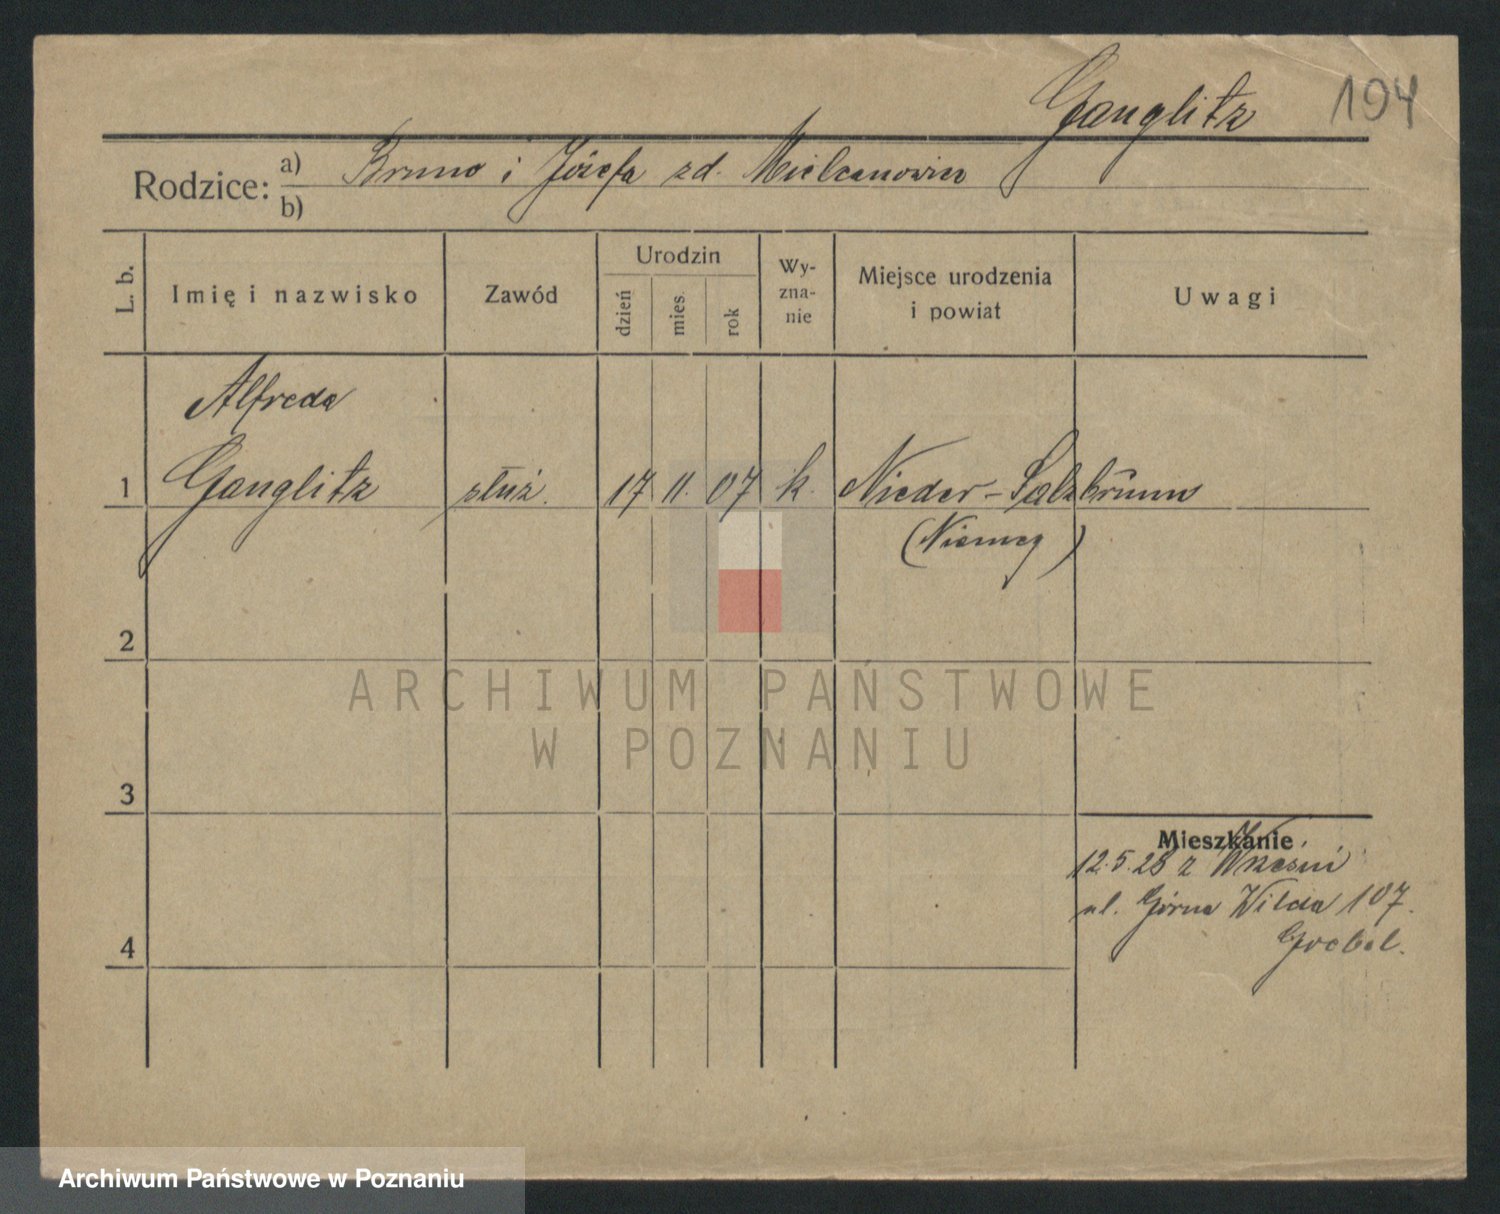 Ganglitz 104
Rodzice: a) Bruno i Józefa zd.
b)
L. b.
Imię i nazwisko
Zawód
Urodzin
dzień
mies.
rok
Wy-
zna-
nie
Miejsce urodzenia
i powiat
Uwagi
Alfreda
1 Ganglitz służ. 17 11. 07 k. Nieder-Salzbrunn
(Niemcy)
2
3
4
Mieszkanie
12.5.28 z Wrześni
ul. Górna Wilda 107.
Goebel.
ARCHIWUM PAŃSTWOWE
W POZNANIU
Archiwum Państwowe w Poznaniu